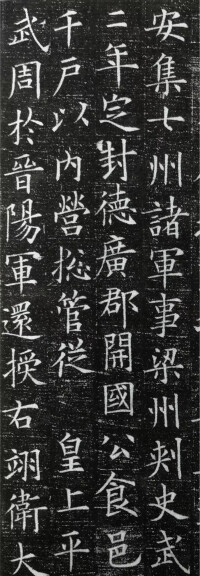 安集七州諸軍事梁州刾史武
二年定封德廣郡開國公食邑
千戶以內營摠管從 皇上平
武周於晉陽軍還授右翊衛大